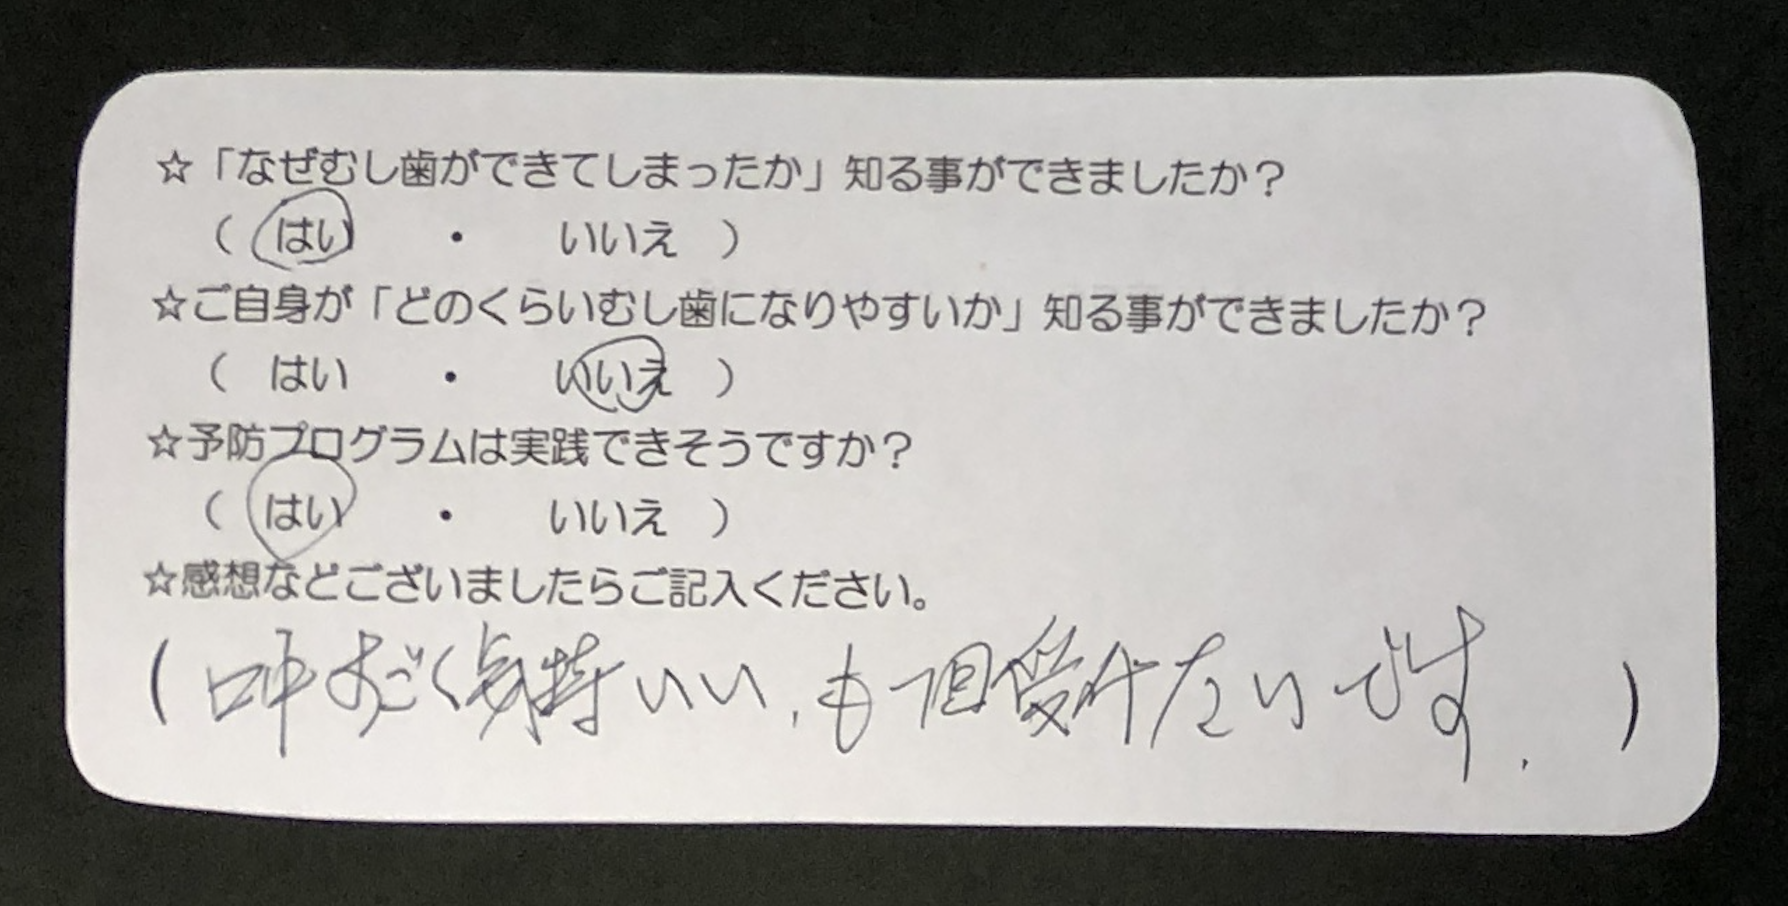 ☆「なぜむし歯ができてしまったか」知る事ができましたか?
( はい ・ いいえ )
☆ご自身が「どのくらいむし歯になりやすいか」知る事ができましたか?
( はい ・ いいえ )
☆予防プログラムは実践できそうですか?
( はい ・ いいえ )
☆感想などございましたらご記入ください。
( 口中すごく気持いい、も一回受けたいです。 )